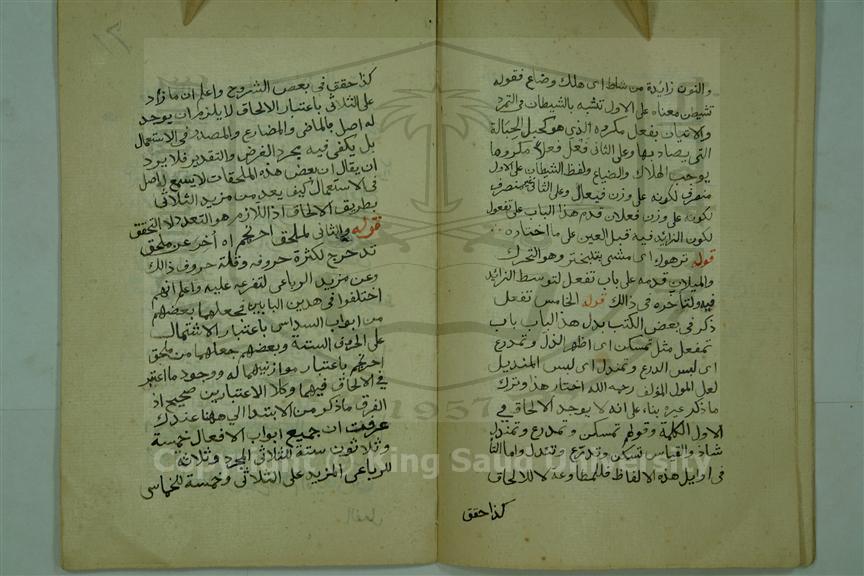 والنون زائدة من شاط اى هلك وضاع فقوله
تشيطن معناه على الاول تشبه بالشيطان فى التمرد
والاتيان بفعل مكروه الذى هو كحبل الحبالة
التى يصاد بها وعلى الثانى فعل فعلا مكروها
يوجب الهلاك والضياع ولفظ الشيطان على الاول
منصرف لكونه على وزن فيعال وعلى الثانى غير منصرف
لكونه على وزن فعلان قدم هذا الباب على تفعول
لكون الزائد فيه قبل العين على ما اختاره
قوله ترهوك اى مشى بتبختر وهو التحرك
والميلان قدمه على باب تفعل لتوسط الزائد
فيه ولتأخره فى ذالك قوله الخامس تفعل
ذكر فى بعض الكتب بدل هذا الباب باب
تمفعل مثل تمسكن اى اظهر الذل وتمدرع
اى لبس الدرع وتمندل اى لبس المنديل
لعل المولى المؤلف رحمه الله اختار هذا وترك
ما ذكر غيره بناء على انه لا يوجد الالحاق فى
الاول الكلمة وقولهم تمسكن وتمدرع وتمندل
شاذ والقياس تسكن وتدرع وتندل واما التاء
فى اوايل هذه الالفاظ فللمطاوعة لا للالحاق
كذا حقق
كذا حقق فى بعض الشروح واعلم ان ما زاد
على الثلاثى باعتبار الالحاق لا يلزم ان يوجد
له اصل بالماضى والمضارع والمصدر فى الاستعمال
بل يكفى فيه مجرد الفرض والتقدير فلا يرد
ان يقال ان بعض هذه الملحقات لا يسمع له اصل
فى الاستعمال كيف يعد من مزيد الثلاثى
بطريق الالحاق اذ اللازم هو التعدد لا التحقق
قوله والثانى لملحق احرنجم اه اخر عن ملحق
تدحرج لكثرة حروفه وقلة حروف ذالك
وعن مزيد الرباعى لتفرعه عليه واعلم انهم
اختلفوا فى هذين البابين فجعلهما بعضهم
من ابواب السداسى باعتبار الاشتمال
على الحروف الستة وبعضهم جعلهما من ملحق
احرنجم باعتبار موازنتهما له ووجود ما اعتبر
فى الالحاق فيهما وكلا الاعتبارين صحيح اذ
الفرق ما ذكر من الابتدا الى ههنا عندك
عرفت ان جميع ابواب الافعال خمسة
وثلاثون ستة للثلاثى المجرد وثلاثة
للرباعى المزيد على الثلاثى وخمسة للخماسى
1957
Copyright © King Saud University